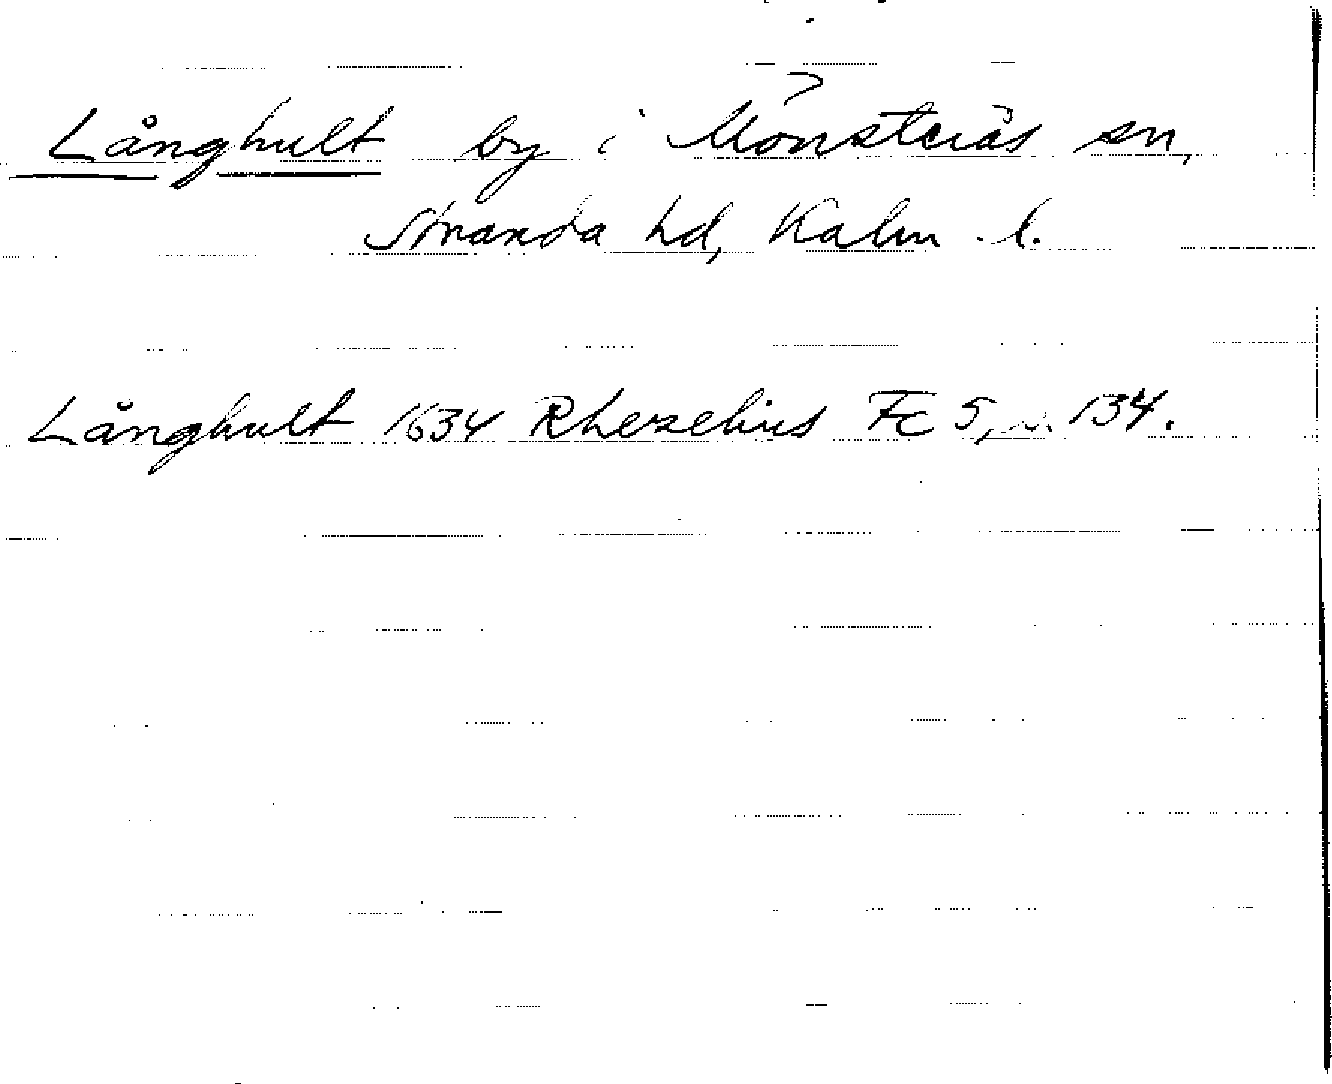 Långhult by i Mönsterås sn,
Stranda hd, Kalm. l.
Långhult 1634 Rhezelius Fc 5, s. 134.